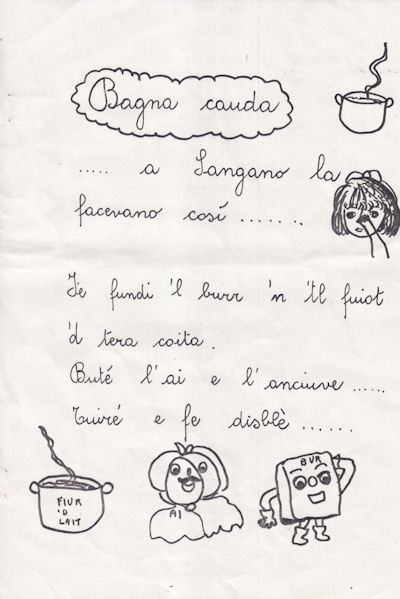 Bagna cauda
..... a Sangano la
facevano così .......
Fè fundi 'l burr 'n 'tl fuiot
'd tera coita.
Buté l'ai e l'anciuve ......
Tuiré e fe disblè ......
FIUR
'D
LAIT
AI
BUR